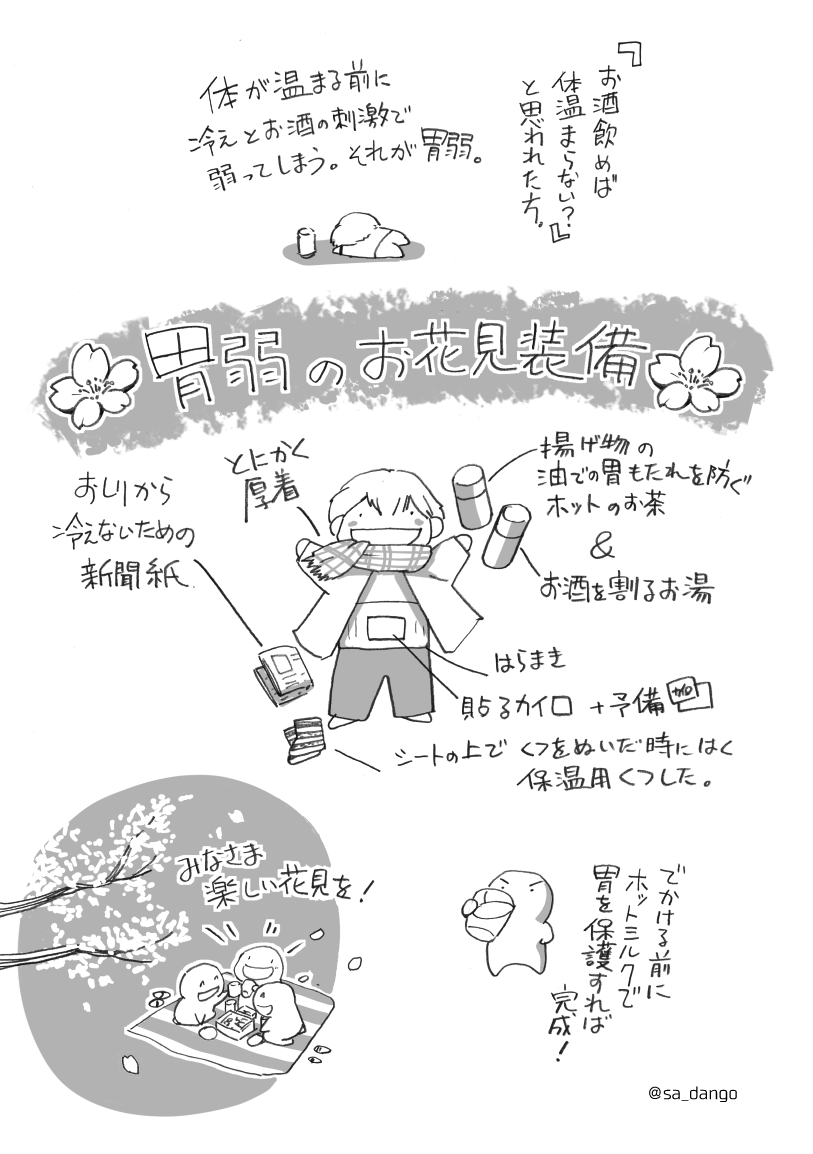 『お酒飲めば
体温まらない?
と思われた方。』
体が温まる前に
冷えとお酒の刺激で
弱ってしまう。それが胃弱。
胃弱のお花見装備
とにかく
厚着
おしりから
冷えないための
新聞紙
揚げ物の
油での胃もたれを防ぐ
ホットのお茶
&
お酒を割るお湯
はらまき
貼るカイロ +予備
カイロ
シートの上でくつをぬいだ時にはく
保温用くつした。
でかける前に
ホットミルクで
胃を保護すれば
完成!
みなさま
楽しい花見を!
@sa_dango